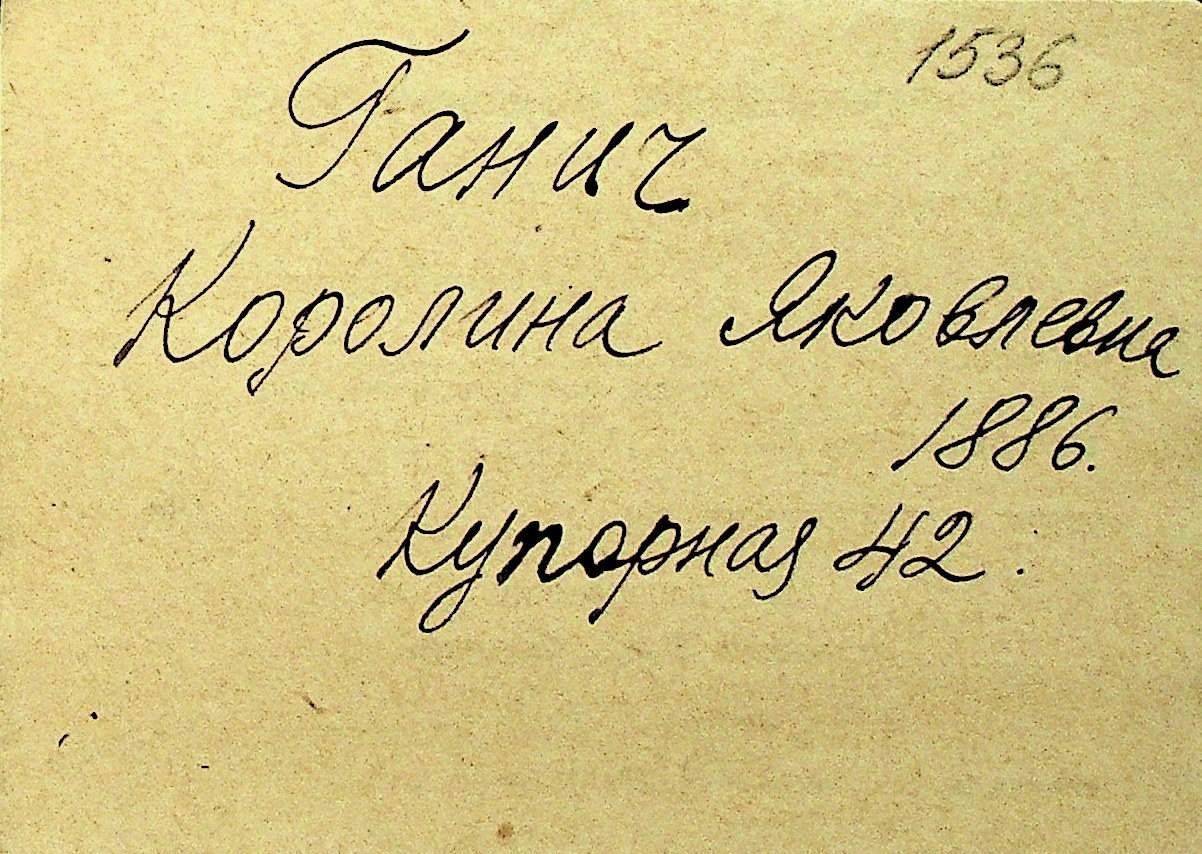 1536
Ганич
Королина Яковлевна
1886.
Купорная 42.